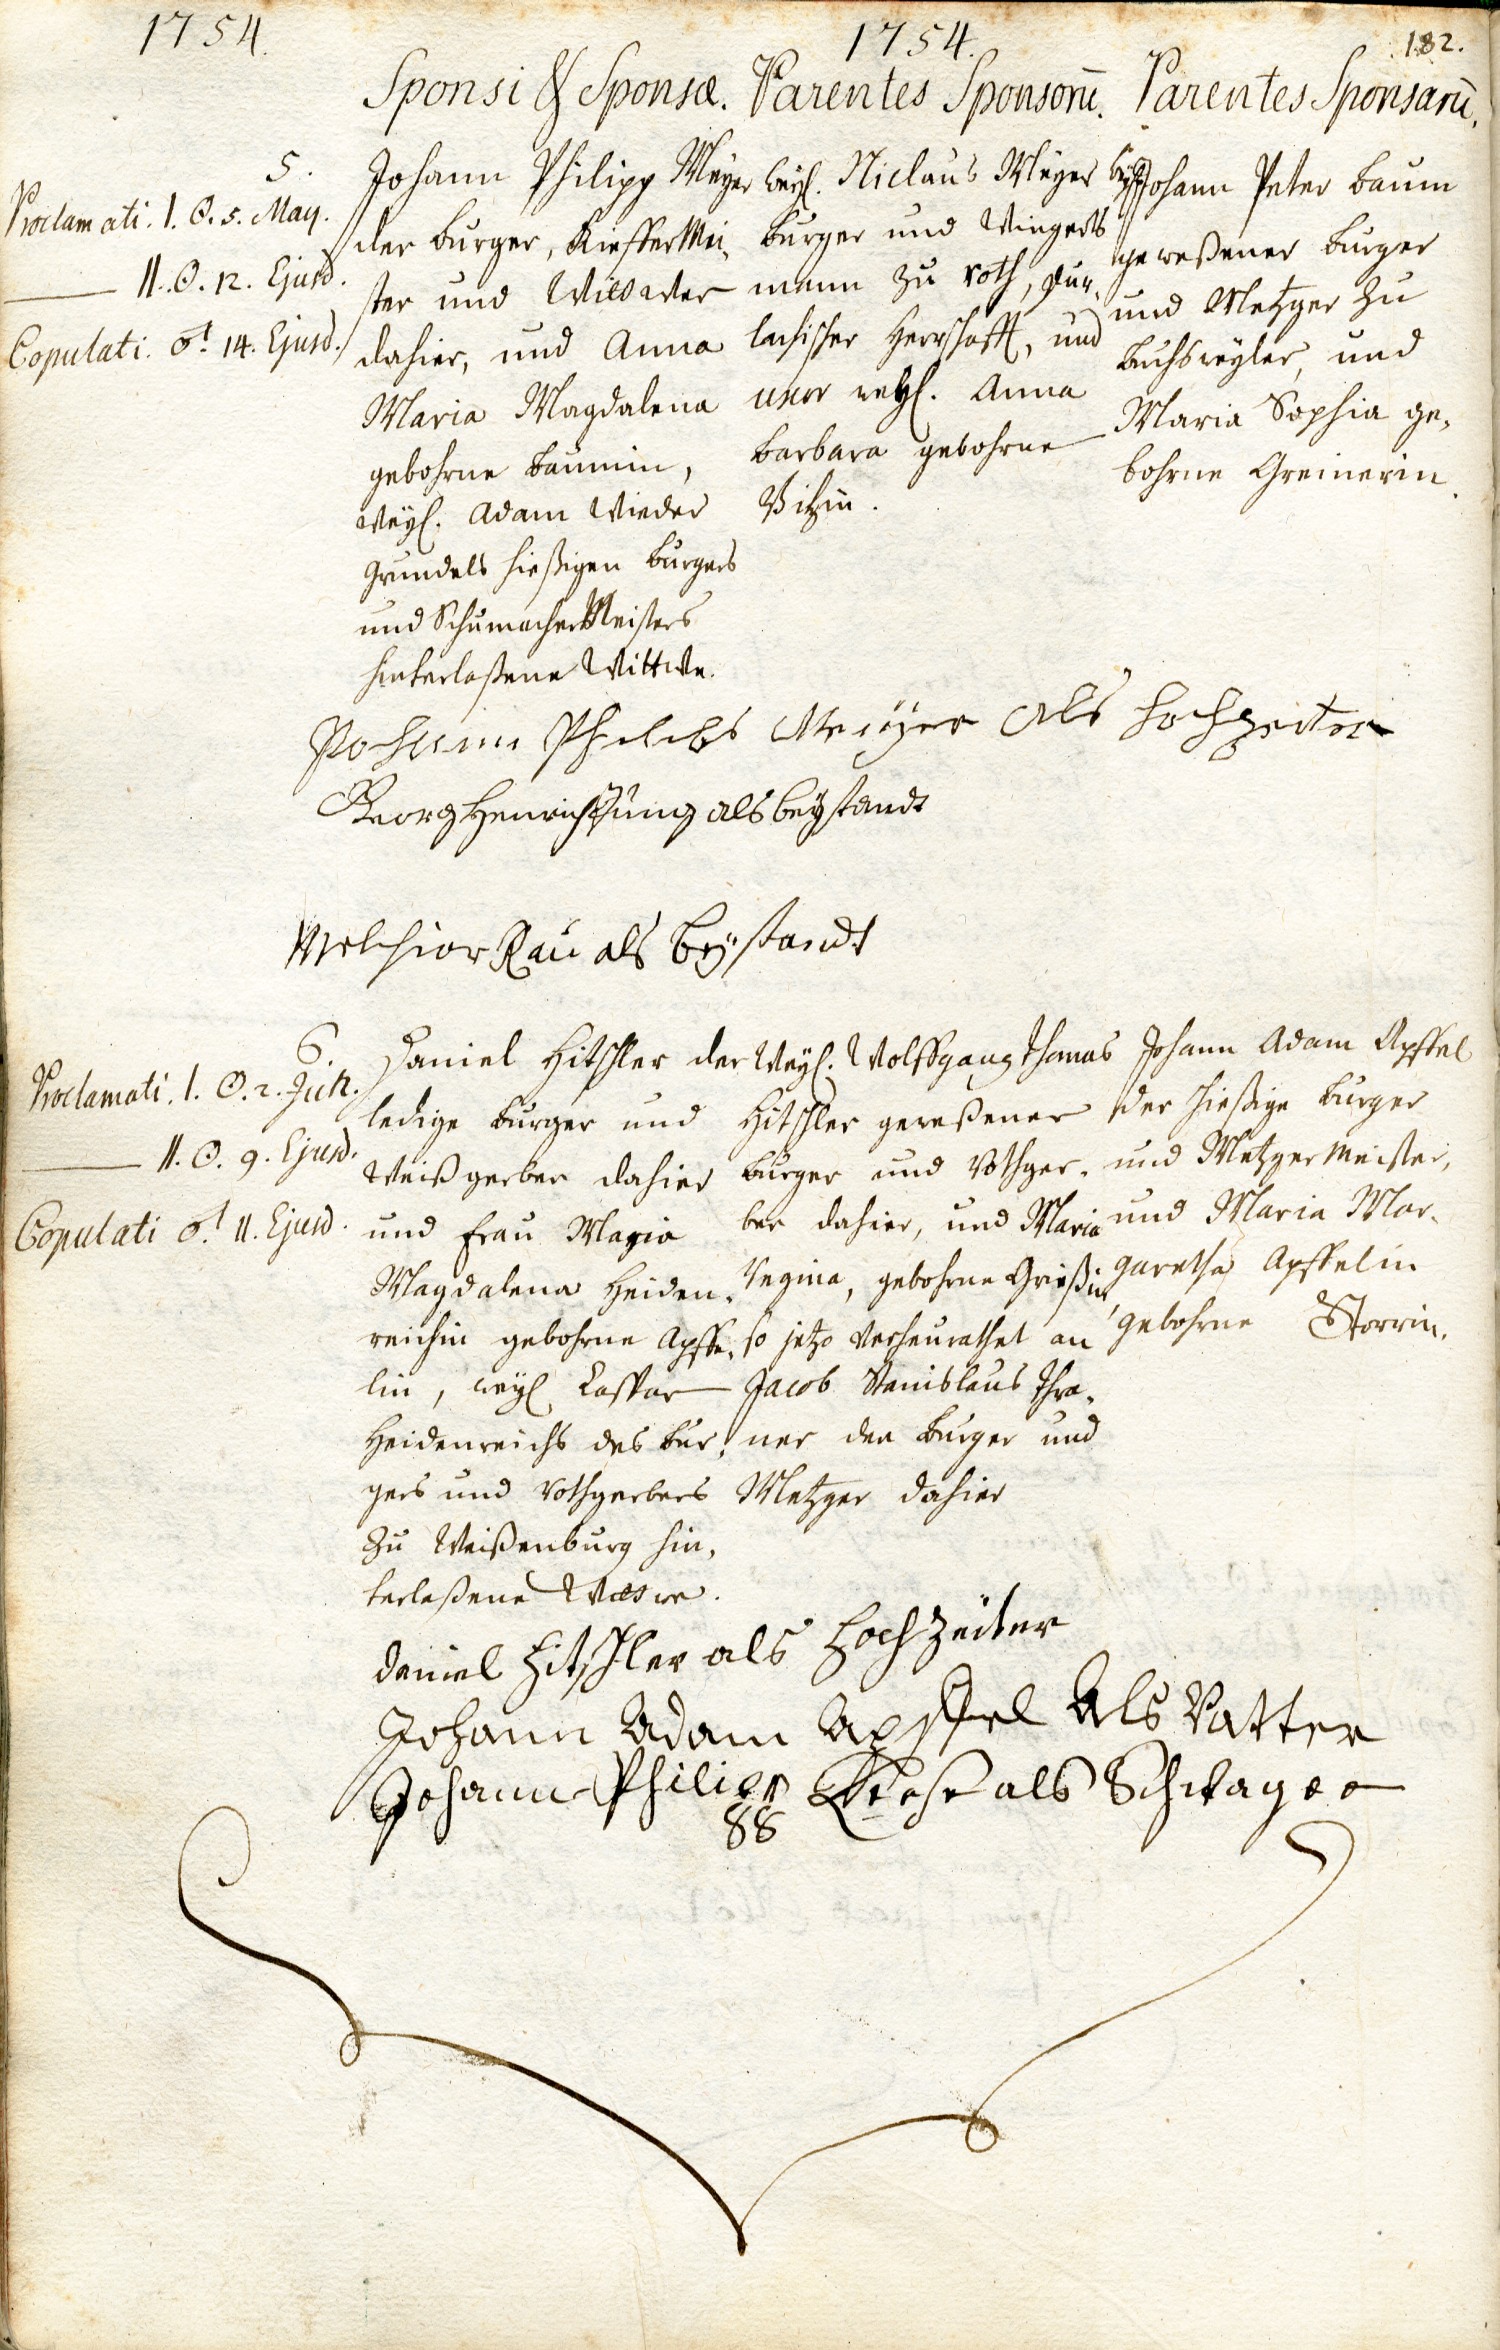 1754.
1754.
182.
Sponsi & Sponsæ.
Parentes Sponsorū.
Parentes Sponsarū.
5.
Proclamati. I. ☉. 5. May.
II. ☉. 12. Ejusd.
Copulati. ♂. 14. Ejusd.
Johann Philipp Meyer
der burger, Kieffer Mei„
ster und Wittwer
dahier, und Anna
Maria Magdalena
gebohrne Baumin,
weyl. Adam Wieder
grundels hießigen burgers
und Schumacher Meisters
hinterlaßene Wittwe.
weyl. Niclaus Meyer
burger und Wingerts
mann zu Roth, Dur„
lachischer Herrschafft, und
uxor weyl. Anna
Barbara gebohrne
weyl. Johann Peter Baum
geweßener burger
und Metzger zu
Buchsweyler, und
Maria Sophia ge„
bohrne Greinerin.
Johann Meyer als Hochzeiter
Georg Henrich Jung als beystandt
Melchior Rau als beystandt
6.
Proclamati. I. ☉. 2. Jun.
II. ☉. 9. Ejusd.
Copulati ♂. 11. Ejusd.
Daniel Hitschler der
ledige burger und
Weißgerber dahier
und Frau Maria
Magdalena Heiden„
reichin gebohrne Apffe„
lin, weyl. Caspar
Heidenreichs des bur„
gers und Rothgerbers
zu Weißenburg hin„
terlaßene Wittwe.
Weyl. Wolffgang Thomas
Hitschler geweßener
burger und Rothger„
ber dahier, und Maria
Regina, gebohrne Grießin,
so jetzo verheurathet an
Jacob Stanislaus Thra„
ner den burger und
Metzger dahier
Johann Adam Apffel
der hießige burger
und Metzger Meister,
und Maria Mar„
garetha Apffelin
gebohrne Storrin.
Daniel Hitschler als Hochzeiter
Johann Adam Apffel Als Vatter
Johann Philipp als Schwager
88